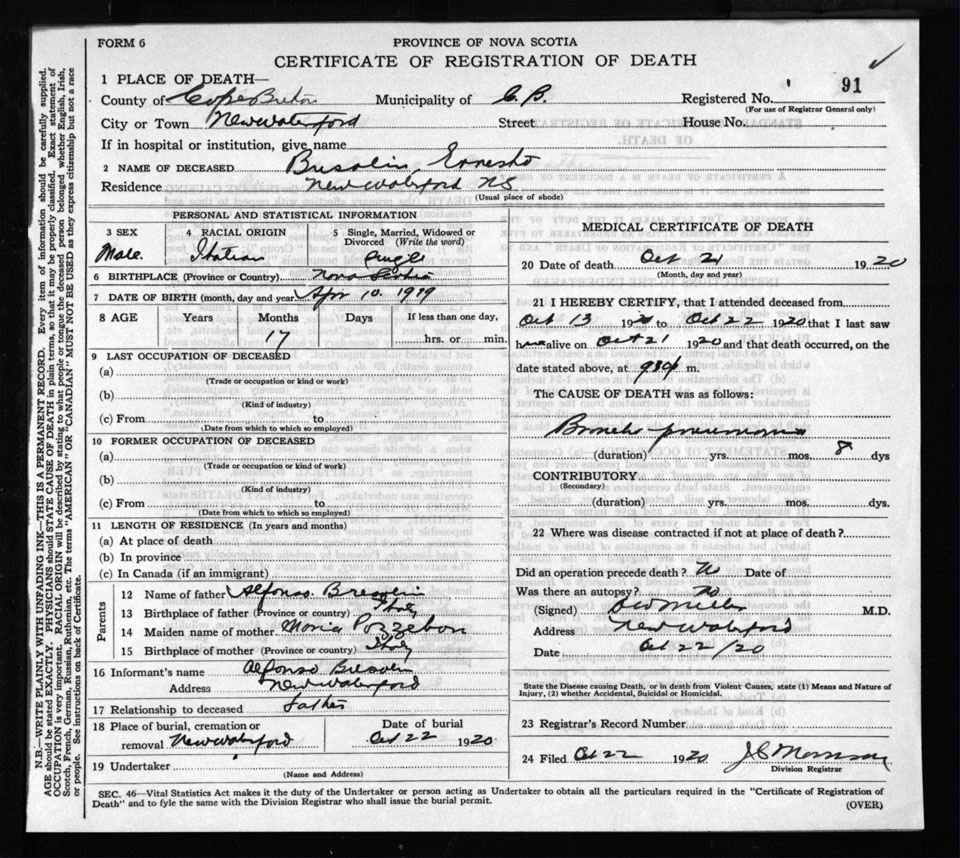 FORM 6
PROVINCE OF NOVA SCOTIA
CERTIFICATE OF REGISTRATION OF DEATH
1 PLACE OF DEATH—
County of Cape Breton Municipality of C. B. Registered No. 91
(For use of Registrar General only)
City or Town New Waterford Street House No.
If in hospital or institution, give name
2 NAME OF DECEASED Ernesto
Residence New Waterford NS
(Usual place of abode)
PERSONAL AND STATISTICAL INFORMATION
3 SEX 4 RACIAL ORIGIN 5 Single, Married, Widowed or Divorced (Write the word)
Male. Italian Single
6 BIRTHPLACE (Province or Country) Nova Scotia
7 DATE OF BIRTH (month, day and year) Apr 10. 1919
8 AGE Years Months Days If less than one day,
17 hrs. or min.
9 LAST OCCUPATION OF DECEASED
(a)
(Trade or occupation or kind of work)
(b)
(Kind of industry)
(c) From to
(Date from which to which so employed)
10 FORMER OCCUPATION OF DECEASED
(a)
(Trade or occupation or kind of work)
(b)
(Kind of industry)
(c) From to
(Date from which to which so employed)
11 LENGTH OF RESIDENCE (In years and months)
(a) At place of death
(b) In province
(c) In Canada (if an immigrant)
Parents
12 Name of father Alfonso
13 Birthplace of father (Province or country) Italy
14 Maiden name of mother Maria Pozzebon
15 Birthplace of mother (Province or Country) Italy
16 Informant's name Alfonso
Address New Waterford
17 Relationship to deceased Father
18 Place of burial, cremation or removal New Waterford Date of burial Oct 22 1920
19 Undertaker
(Name and Address)
MEDICAL CERTIFICATE OF DEATH
20 Date of death Oct 21 1920
(Month, day and year)
21 I HEREBY CERTIFY, that I attended deceased from
Oct 13 1920 to Oct 22 1920 that I last saw
him alive on Oct 21 1920 and that death occurred, on the
date stated above, at m.
The CAUSE OF DEATH was as follows:
Broncho pneumonia
(duration) yrs. mos. 8 dys
CONTRIBUTORY
(Secondary)
(duration) yrs. mos. dys.
22 Where was disease contracted if not at place of death?
Did an operation precede death? No Date of
Was there an autopsy? No
(Signed) M.D.
Address New Waterford
Date Oct 22/20
State the Disease causing Death, or in death from Violent Causes, state (1) Means and Nature of
Injury, (2) whether Accidental, Suicidal or Homicidal.
23 Registrar's Record Number
24 Filed Oct 22 1920
Division Registrar
SEC. 46—Vital Statistics Act makes it the duty of the Undertaker or person acting as Undertaker to obtain all the particulars required in the "Certificate of Registration of
Death" and to fyle the same with the Division Registrar who shall issue the burial permit.
(OVER)
N.B.—WRITE PLAINLY WITH UNFADING INK—THIS IS A PERMANENT RECORD. Every item of information should be carefully supplied.
AGE should be stated EXACTLY. PHYSICIANS should STATE CAUSE OF DEATH in plain terms, so that it may be properly classified. Exact statement of
OCCUPATION is very important. RACIAL ORIGIN will be described by stating to what people or tongue the deceased person belonged whether English, Irish,
Scotch, French, German, Russian, Ruthenian, etc. The terms "AMERICAN" OR "CANADIAN" MUST NOT BE USED as they express citizenship but not a race
or people. See instructions on back of Certificate.